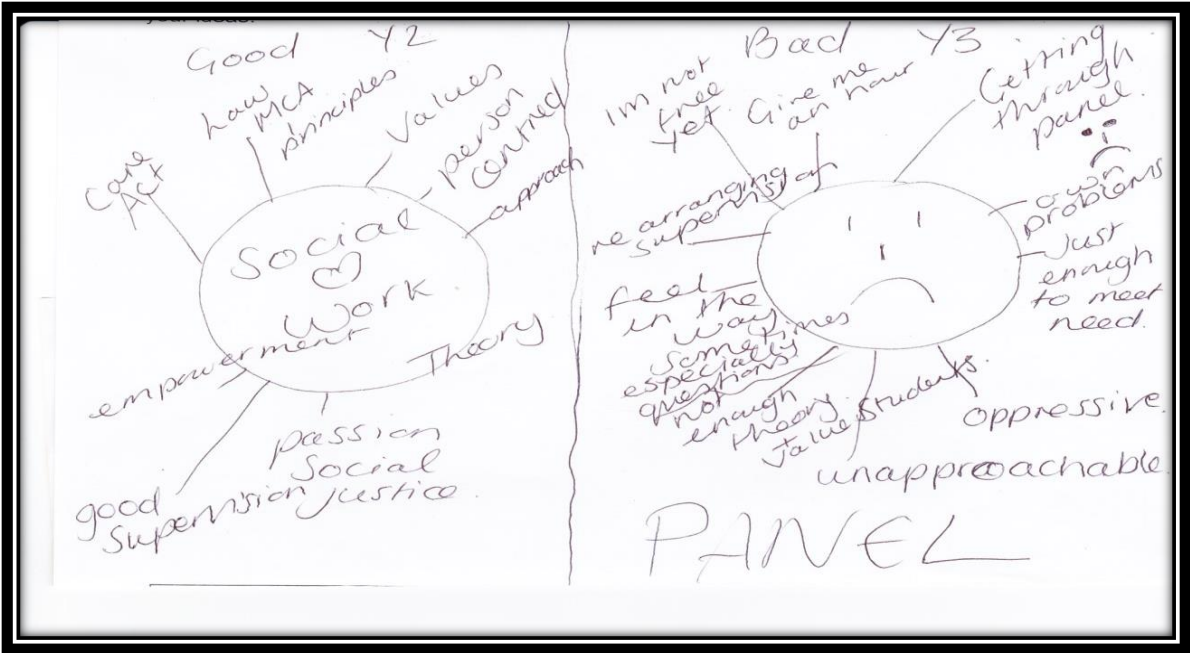 your ideas.
Good Y2
Care
Act
Law
MCA
principles
Values
person
centred
approach
Social
Work.
empowerment
Theory
good
Supervision
passion
Social
justice.
Bad Y3
Im not
free
yet.
Give me
an hour
Getting
through
panel.
rearranging
supervision
own
problems
Just
enough
to meet
need.
feel
in the
way
sometimes
especially
questions
not
enough
theory.
Value students.
oppressive.
unapproachable.
PANEL